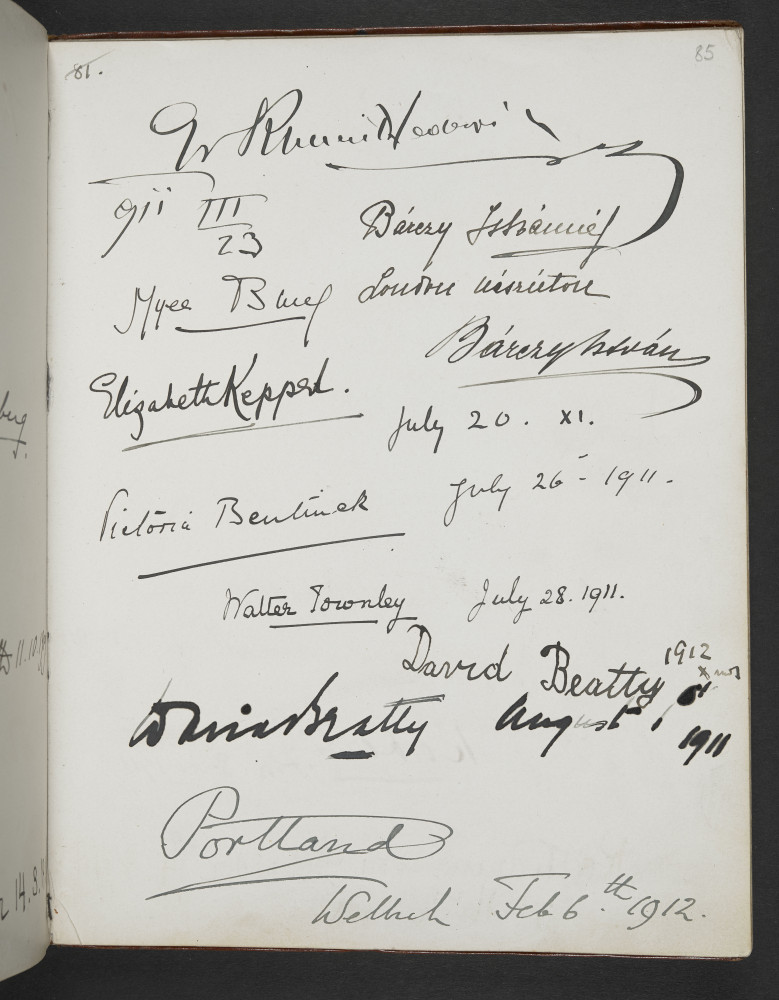 81.
85
Gr Khuen Héderváry
911 III 23
Bárczy Istvánné
London
Bárczy István
Elizabeth Keppel.
July 20. XI.
Victoria Bentinck
July 26 - 1911.
Walter Townley
July 28. 1911.
David Beatty 1912
Xmas
David Beatty August 1st
1911
Portland
Welbeck Feb 6.th 1912.
11.10.
14.8.